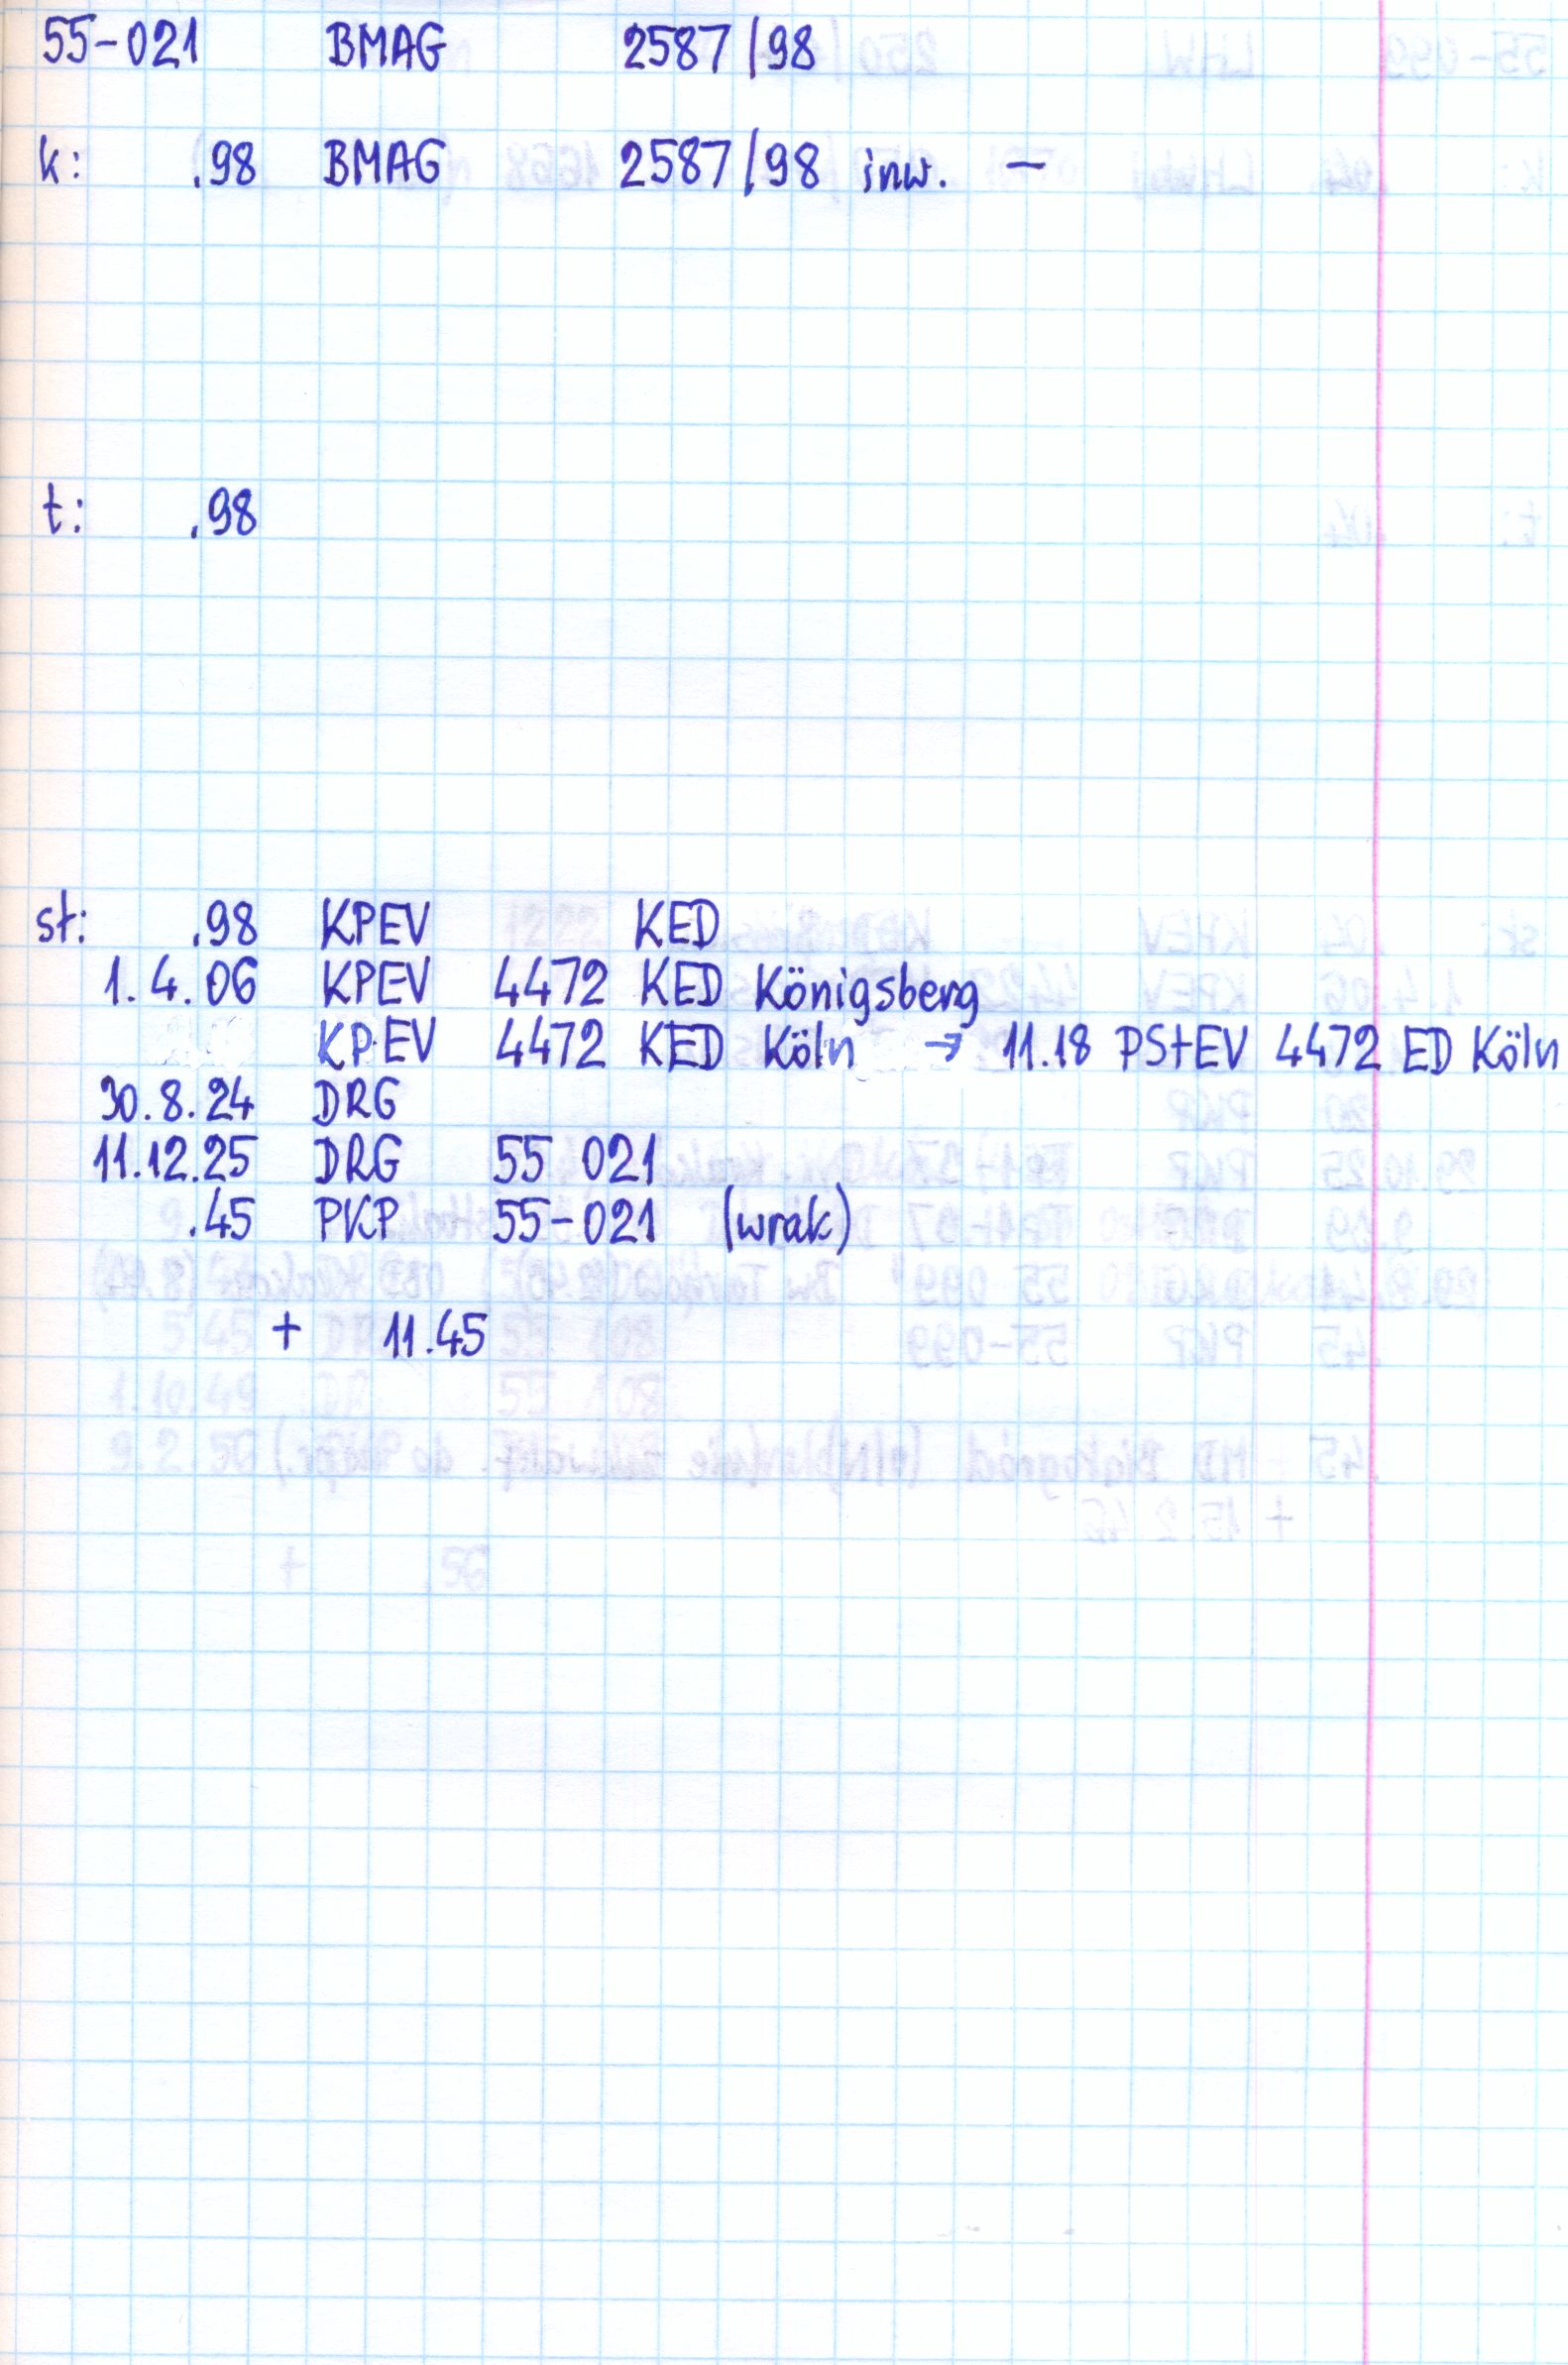 55-021 BMAG 2587/98
k: .98 BMAG 2587/98 inw. –
t: .98
st: .98 KPEV KED
1.4.06 KPEV 4472 KED Königsberg
KPEV 4472 KED Köln → 11.18 PStEV 4472 ED Köln
30.8.24 DRG
11.12.25 DRG 55 021
.45 PKP 55-021 (wrak)
+ 11.45